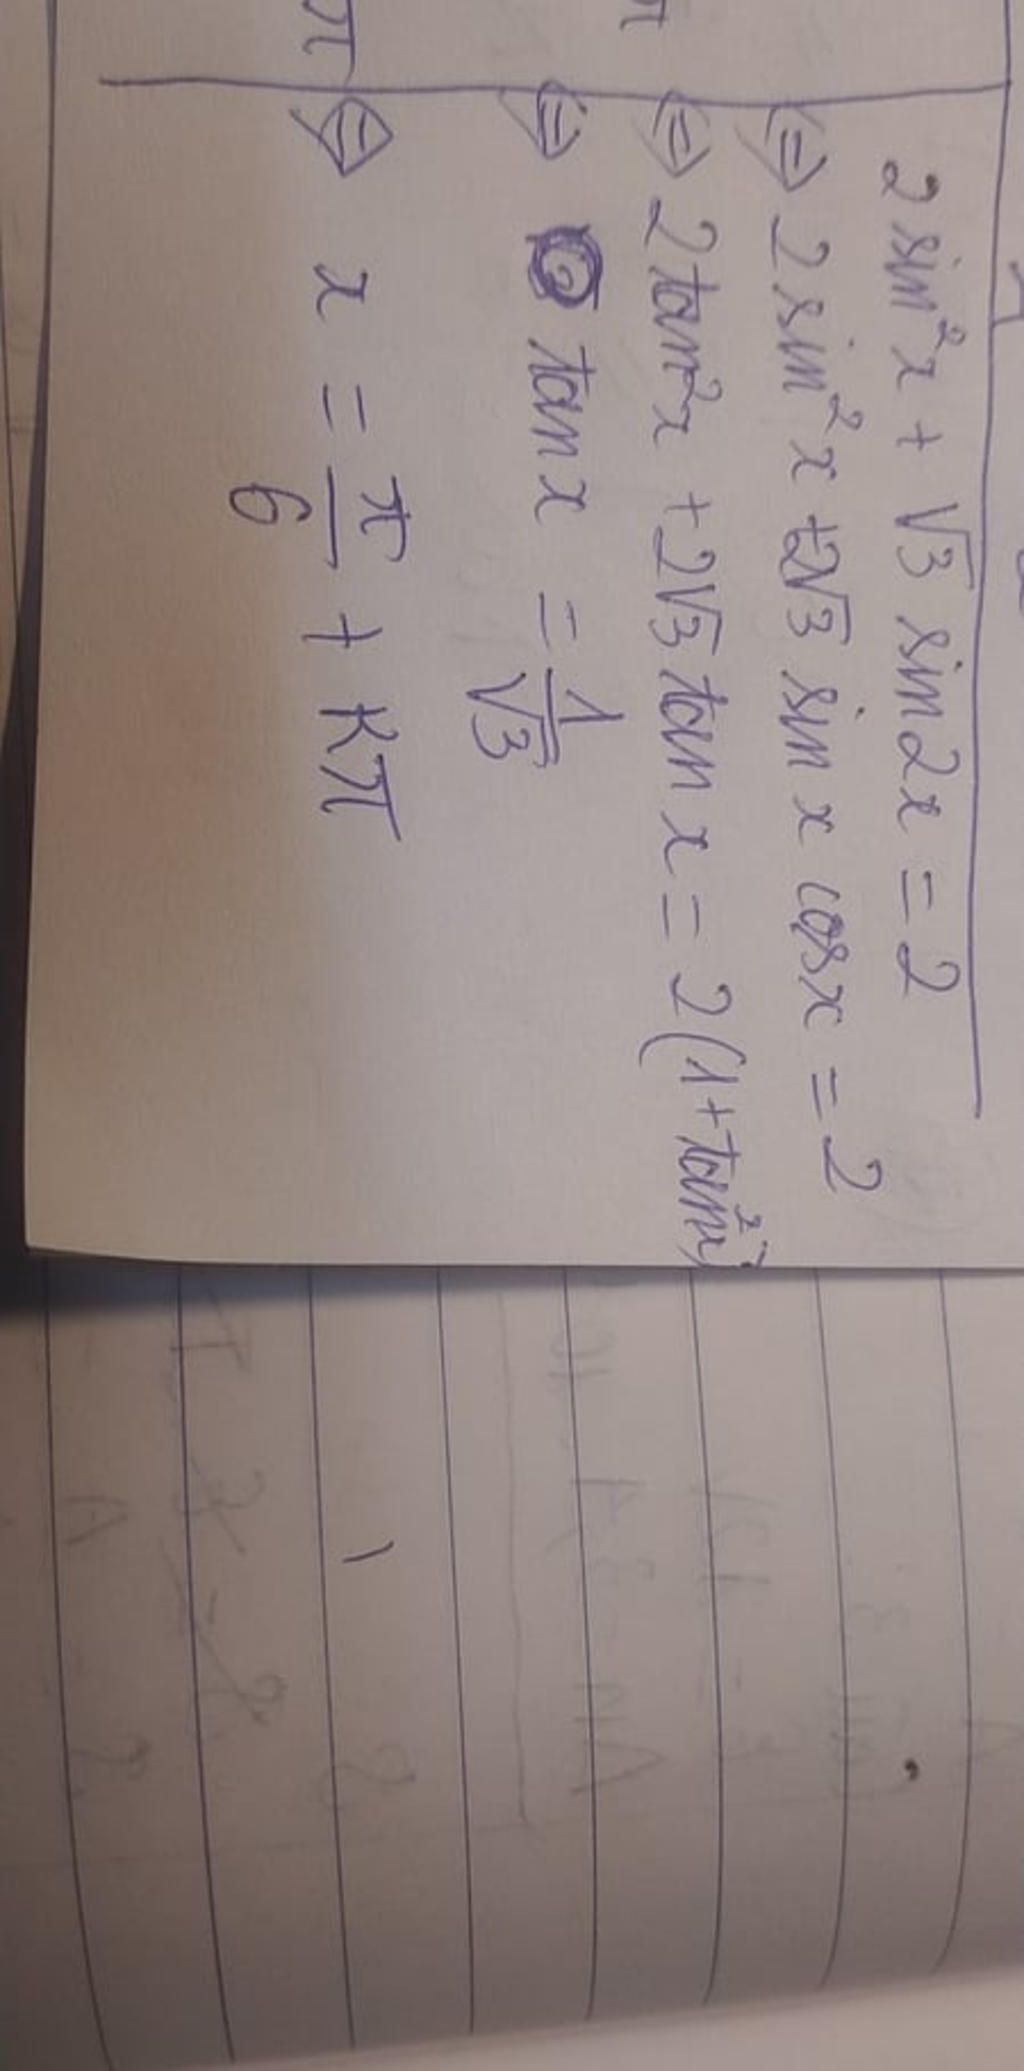 2 sin²x + √3 sin2x = 2
⇔ 2 sin²x + 2√3 sin x cosx = 2
⇔ 2 tan²x + 2√3 tan x = 2(1+tan²x)
⇔ tan x = 1/√3
⇔ x = π/6 + Kπ
π
π